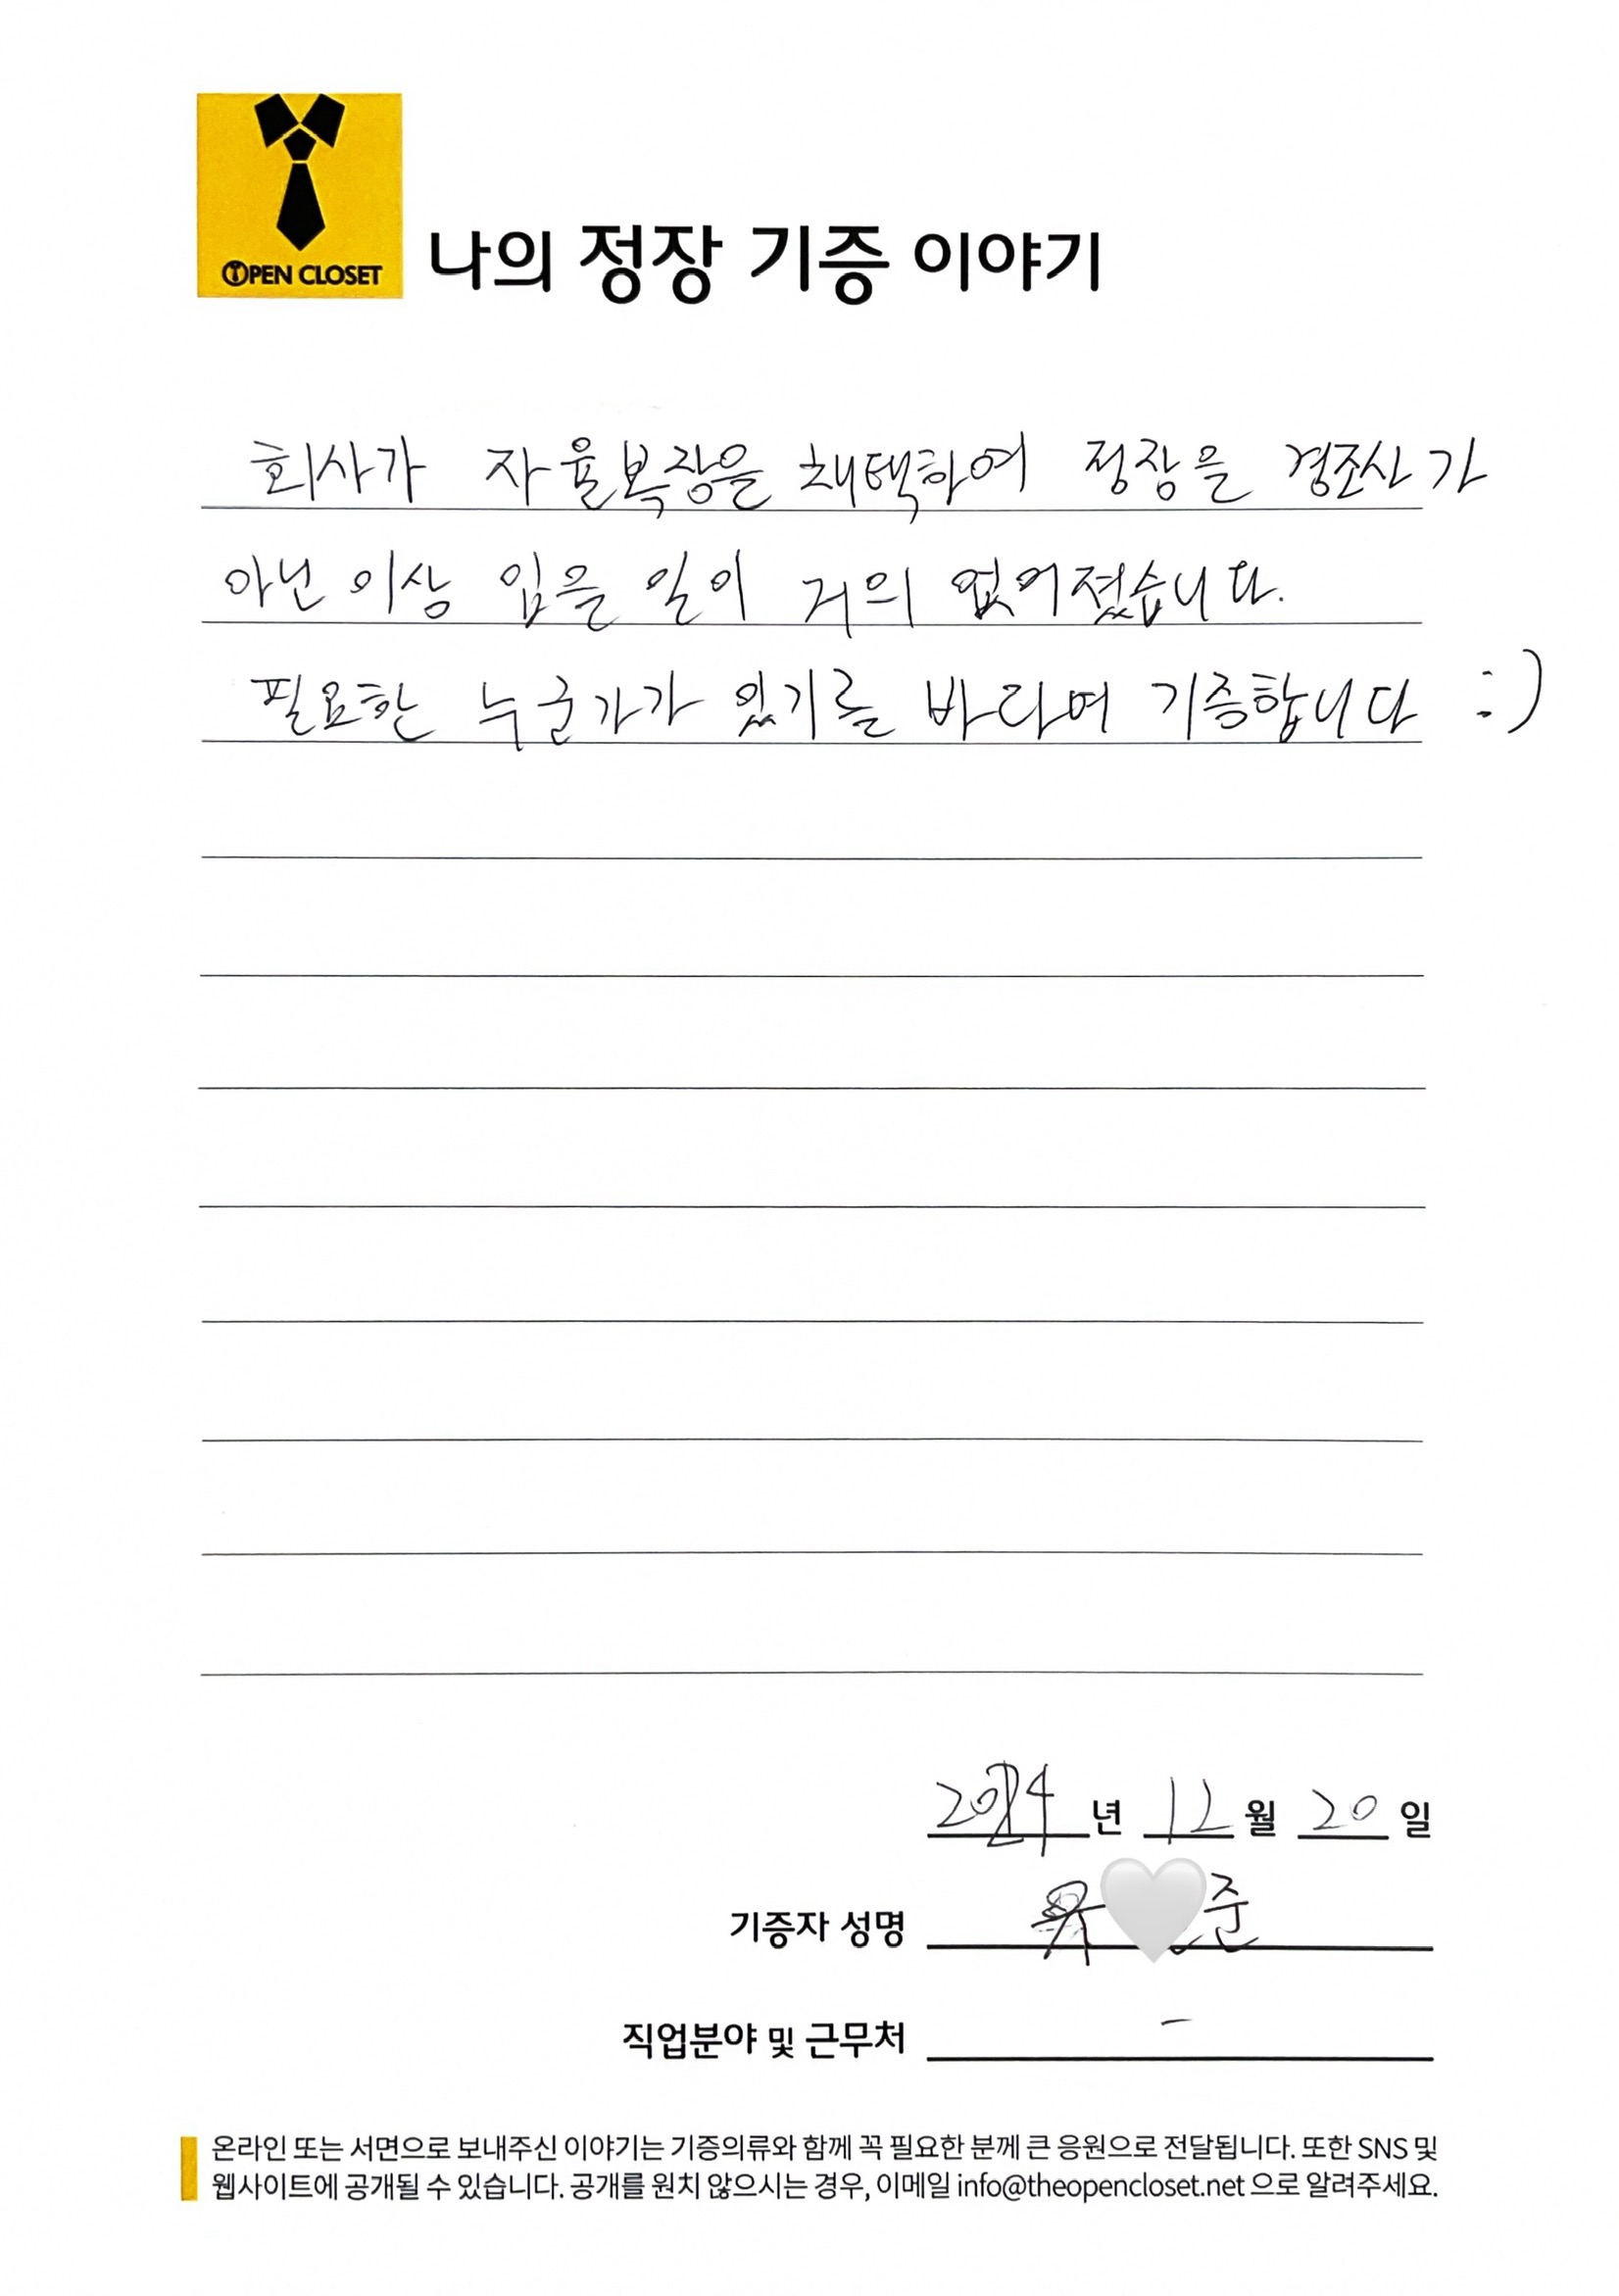 OPEN CLOSET
나의 정장 기증 이야기
회사가 자율복장을 채택하여 정장을 경조사가
아닌 이상 입을 일이 거의 없어졌습니다.
필요한 누군가가 있기를 바라며 기증합니다 :)
2024년 12월 20일
기증자 성명 준
직업분야 및 근무처 -
온라인 또는 서면으로 보내주신 이야기는 기증의류와 함께 꼭 필요한 분께 큰 응원으로 전달됩니다. 또한 SNS 및
웹사이트에 공개될 수 있습니다. 공개를 원치 않으시는 경우, 이메일 info@theopencloset.net 으로 알려주세요.